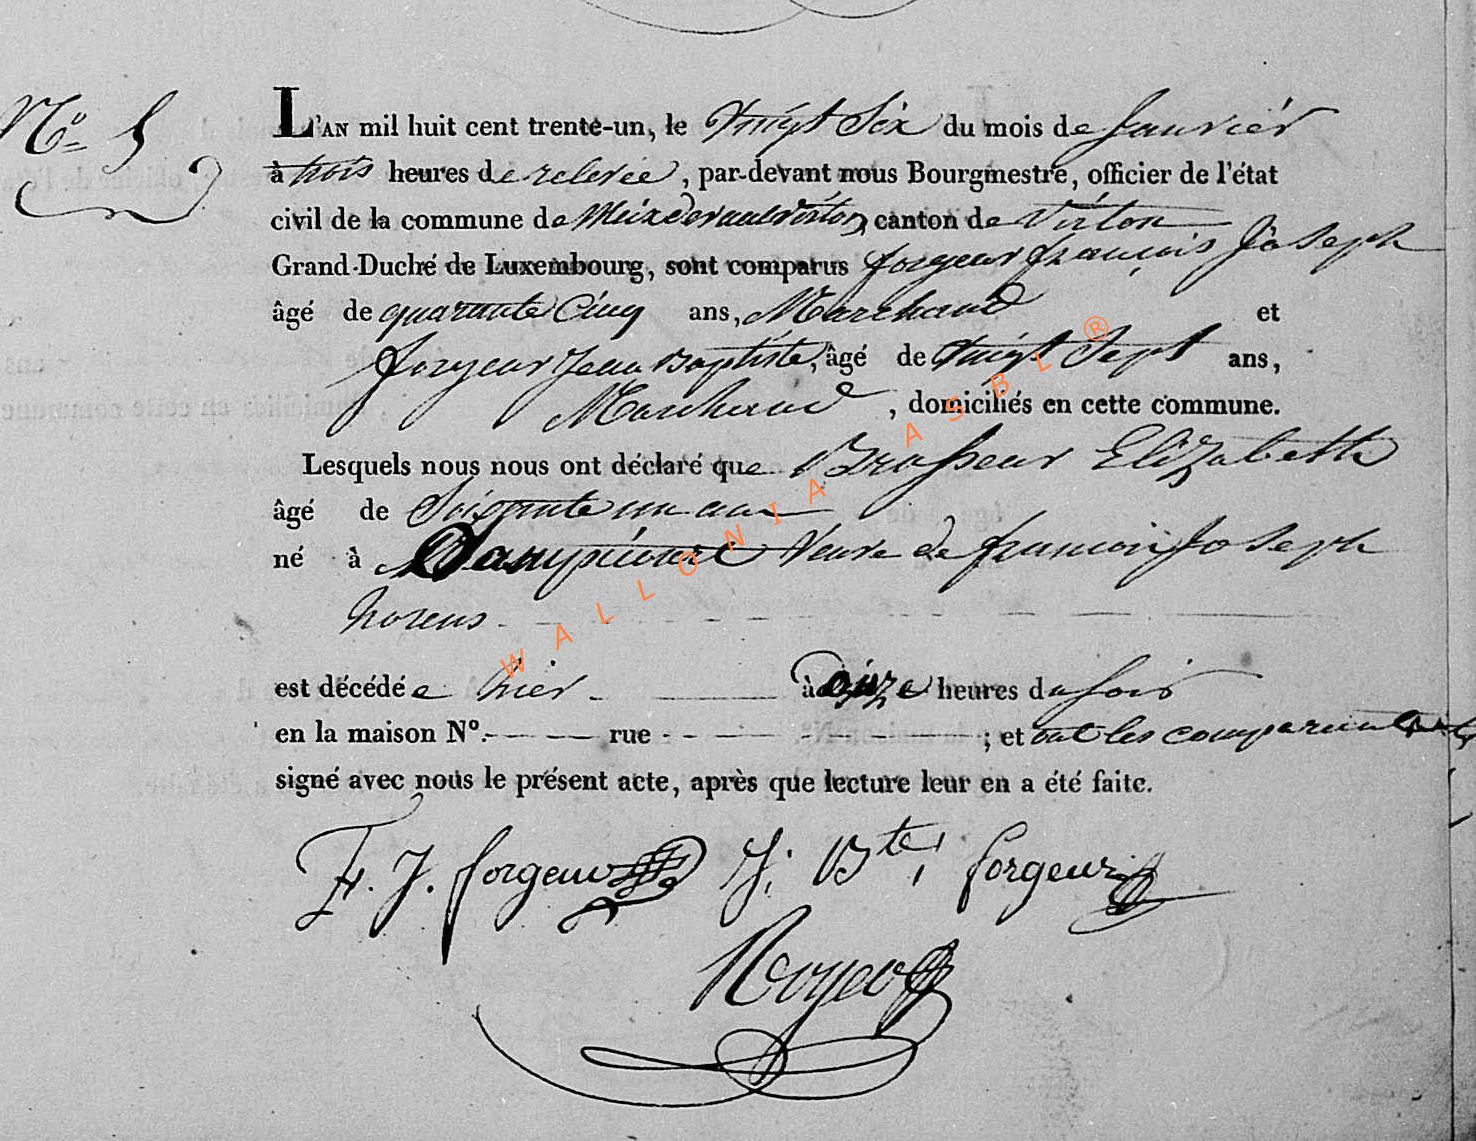 N.º 5
L'AN mil huit cent trente-un, le vingt Six du mois de Janvier
à trois heures de relevée, par-devant nous Bourgmestre, officier de l'état
civil de la commune de Meix devant Virton, canton de Virton
Grand-Duché de Luxembourg, sont comparus forgeur françois Joseph
âgé de quarante Cinq ans, Marchand et
forgeur Jean Baptiste, âgé de vingt Sept ans,
Marchand, domiciliés en cette commune.
Lesquels nous nous ont déclaré que Brasseur Elizabeth
âgé de Soixante un ans
né à Dampicourt veuve de francois Joseph
est décédée hier à onze heures du soir
en la maison Nº. rue ; et ont les comparants
signé avec nous le présent acte, après que lecture leur en a été faite.
F. J. forgeur J. Bte. forgeur
WALLONIA ASBL ®